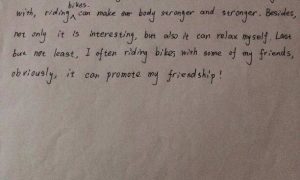 bikes.
with, riding, can make our body stronger and stronger. Besides,
not only it is interesting, but also it can relax myself. Last
but not least, I often riding bikes with some of my friends,
obviously, it can promote my friendship!